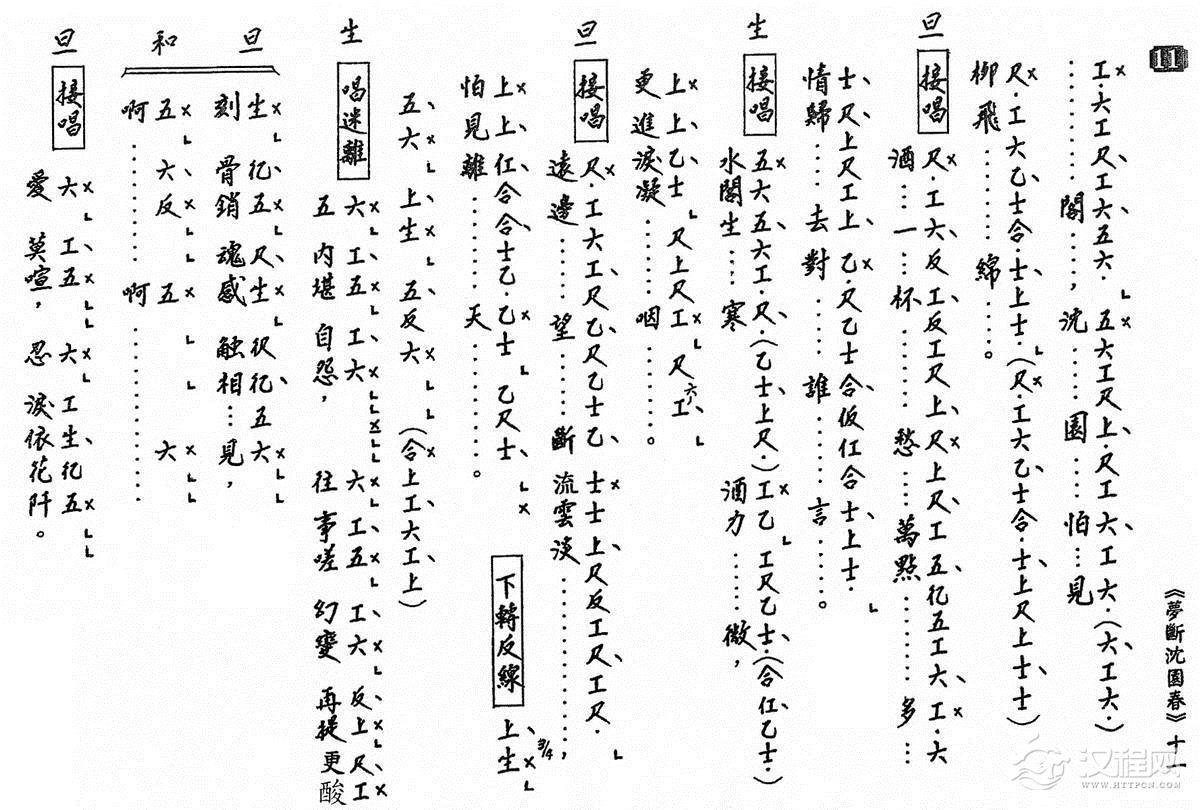 11
《夢斷沈園春》十一
工六工尺工六五六.五六工尺上.尺工六工六.(六工六.)
…………閣……，沈……園……怕…見
尺.工六乙士合士上士.(尺.工六乙士合.士上尺上士士)
柳飛………綿…。
旦
接唱
尺.工六反工反工尺上.尺上尺工五.
酒…一…杯……愁…萬點………多…
士尺上尺工上乙.尺乙士合仮仜合士上士.
情歸……去對……誰…言……。
生
接唱
五六五六工尺.(乙士上尺.)工乙工尺乙士.(合仜乙士.)
水閣生…寒 酒力……微，
上上乙士尺上尺工尺六工
更進淚凝……咽………。
旦
接唱
尺.工六工尺乙尺乙士乙士士上尺反工尺工尺.
遠邊……望……斷流雲淡…………，
上上仜合合士乙.乙士乙尺士
怕見離………天………。
下轉反線
3/4
上生
五六上生五反六(合上工六工上)
生
唱迷離
六工五工六 六工五工六反上尺工
五內堪自怨，往事嗟幻變再提更酸
旦
刻骨銷魂感觸相…見，
和
五六反五六
啊………啊………
旦
接唱
愛莫喧，忍淚依花阡。
汉程网
WWW.HTTPCN.COM